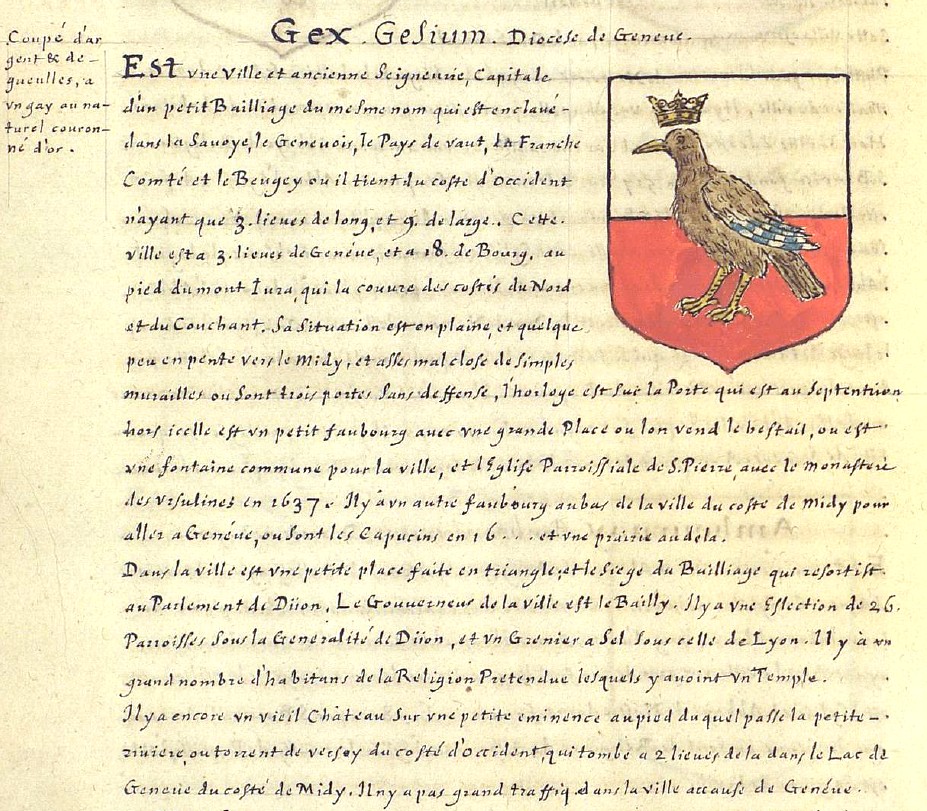 Gex. Gesium. Diocese de Geneve.
Coupé d'ar
gent & de -
gueulles, a
vn gay au na-
turel couron-
né d'or.
Est vne Ville et ancienne Seigneurie, Capitale
d'un petit Bailliage du mesme nom qui est enclavé -
dans la Savoye, le Genevois, le Pays de vaut, la Franche
Comté et le Beugey ou il tient du coste d'Occident
n'ayant que 3. lieues de long, et 9. de large. Cette.
ville est a 3. lieues de Genéve, et a 18. de Bourg, au
pied du mont Iura, qui la couvre des costés du Nord
et du Couchant. Sa Situation est en plaine, et quelque
peu en pente vers le Midy, et asses mal close de simples
murailles ou sont trois portes sans deffense, l'horloge est sur la Porte qui est au Septentrion
hors icelle est vn petit faubourg avec vne grande Place ou lon vend le bestail, ou est
vne fontaine commune pour la ville, et l'Eglise Parroissiale de S. Pierre, avec le monastere
des vrsulines en 1637. Il y a vn autre faubourg au bas de la ville du coste de Midy pour
aller a Genéve, ou sont les Capucins en 16 . . . et vne prairie au dela.
Dans la ville est vne petite place faite en triangle, et le Siege du Bailliage qui resortist
au Parlement de Diion. Le Gouverneur de la ville est le Bailly. Il y a vne Eslection de 26.
Parroisses sous la Generalité de Diion, et vn Grenier a Sel sous celle de Lyon. Il y à vn
grand nombre d'habitans de la Religion Pretendue lesquels y avoint vn Temple.
Il y a encore vn vieil Château sur vne petite eminence au pied duquel passe la petite -
riviere, ou torrent de versoy du costé d'Occident, qui tombe a 2 lieues de la dans le Lac de
Geneve du costé de Midy. Il n'y a pas grand traffiq dans la ville accause de Genéve.